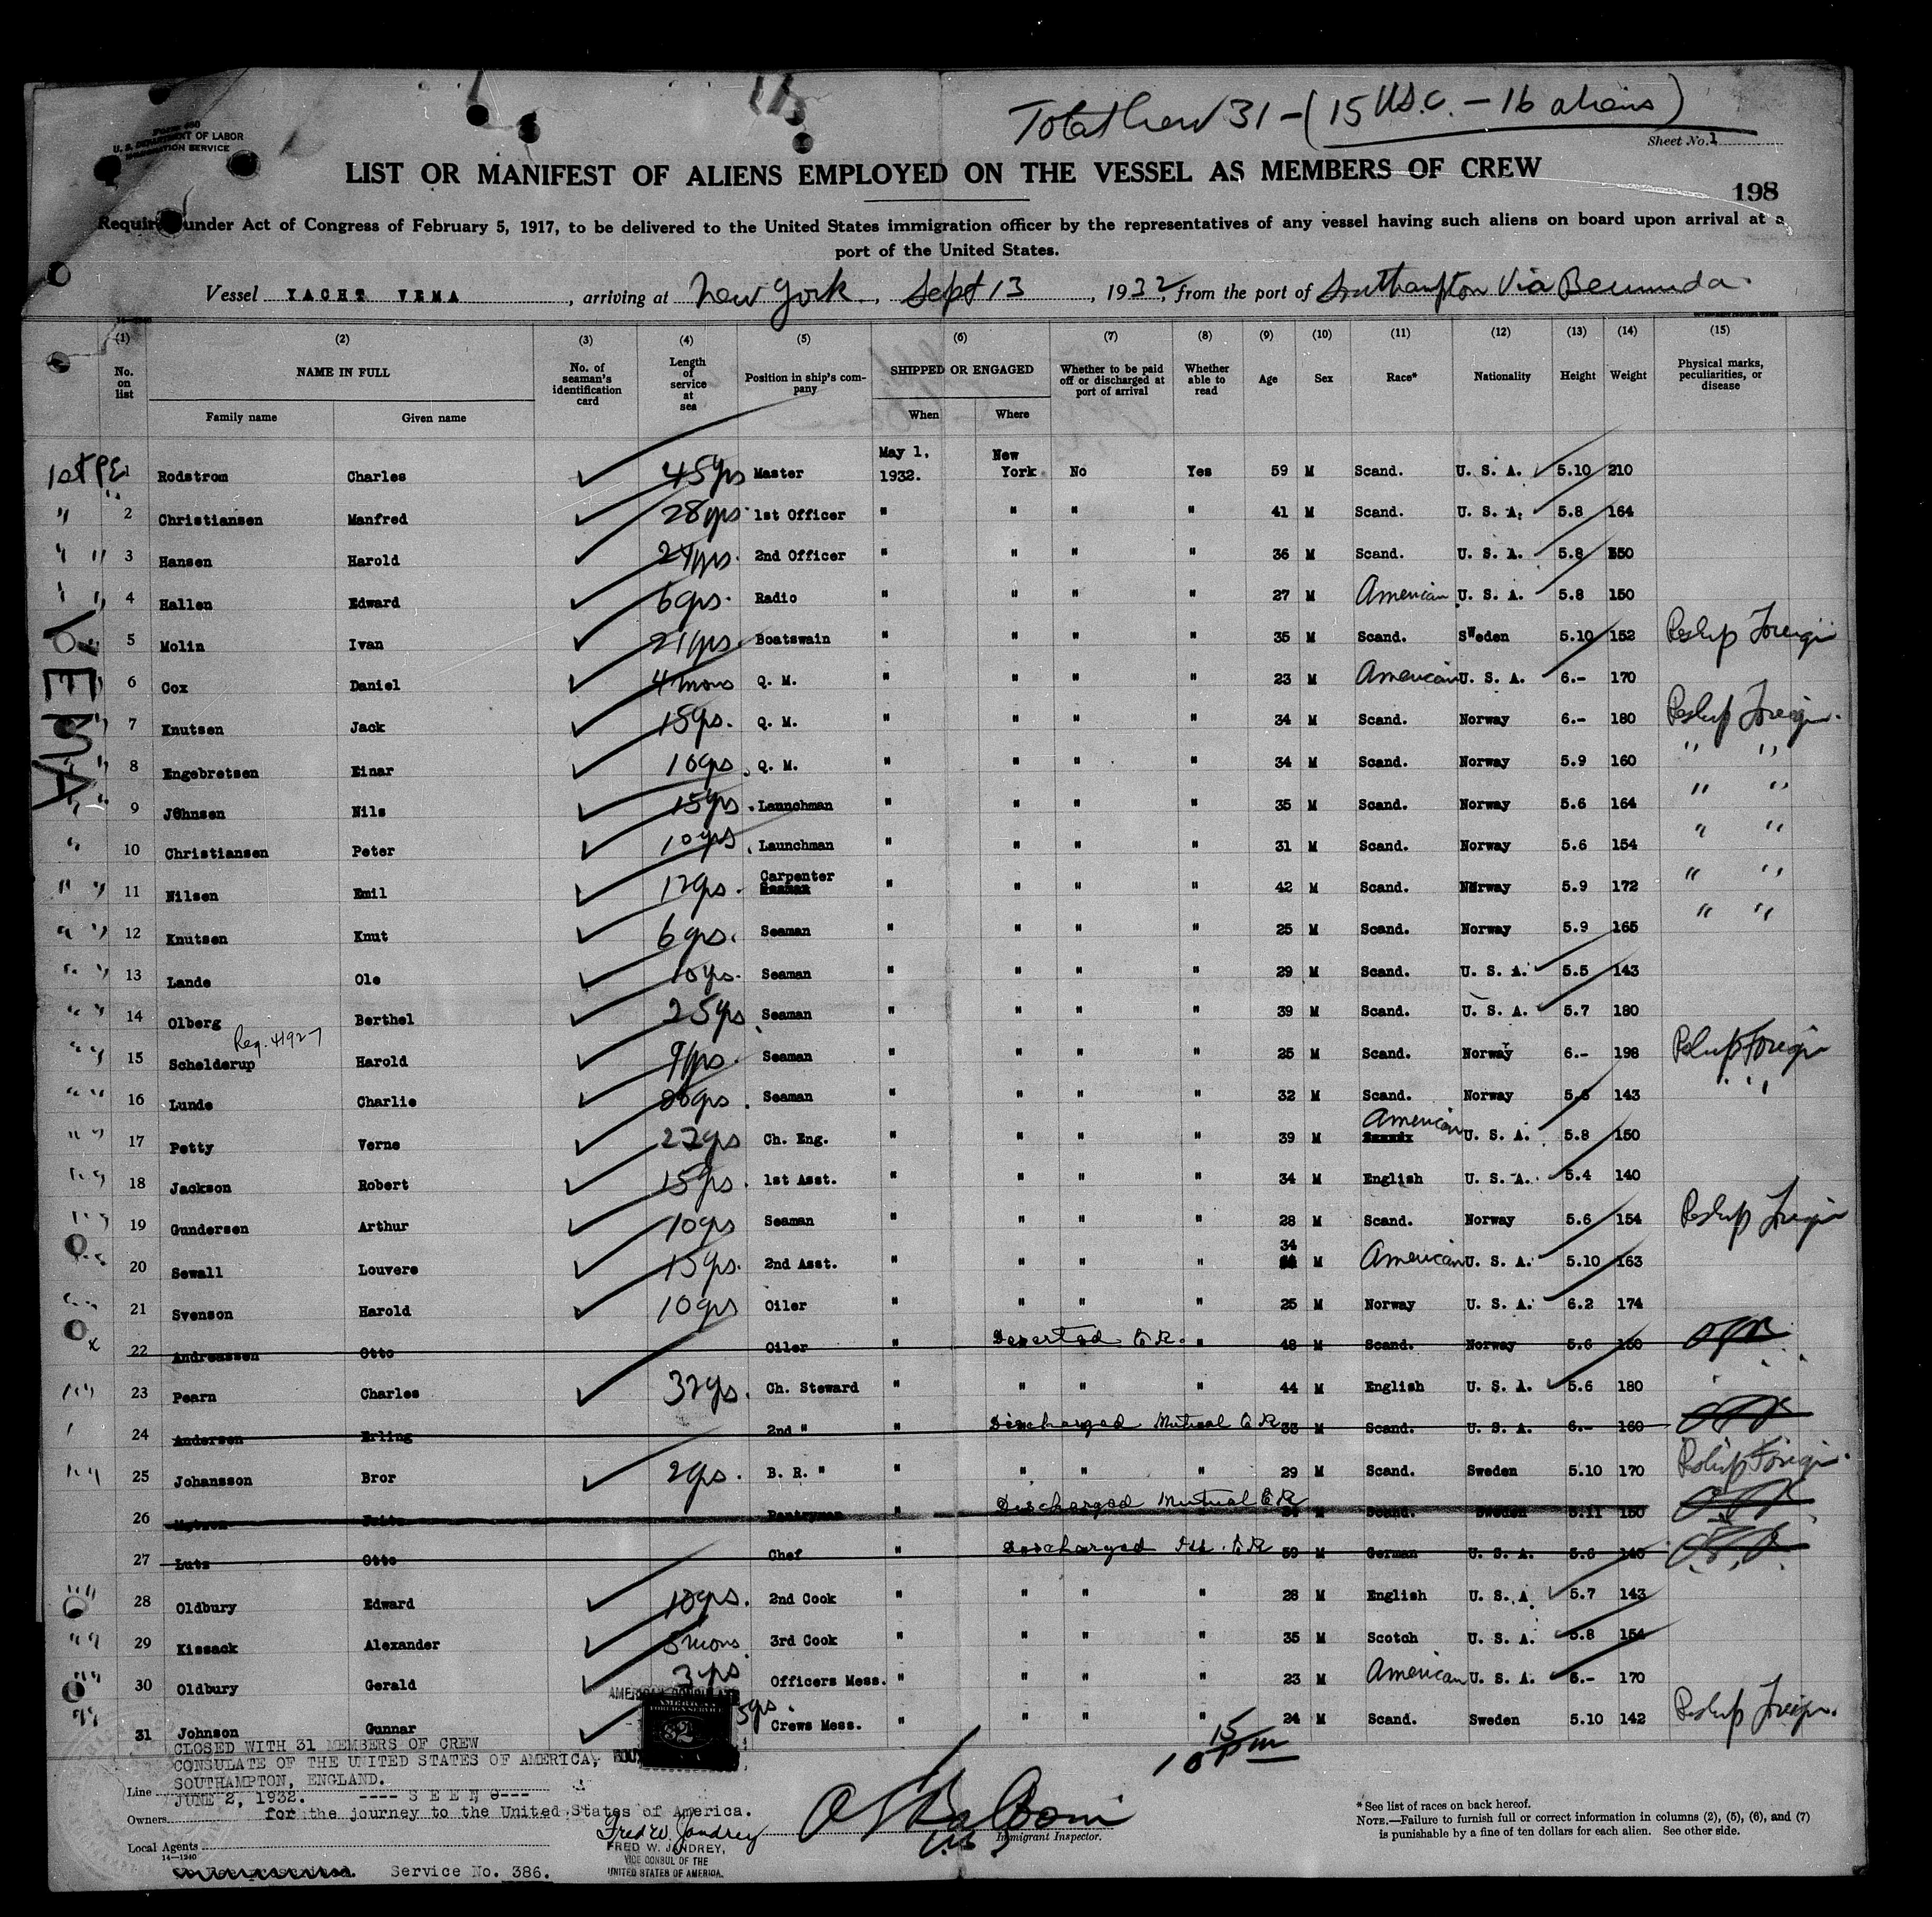 Total Crew 31 - (15 U.S.C. - 16 aliens)
U. S. DEPARTMENT OF LABOR
IMMIGRATION SERVICE
Sheet No. 1
LIST OR MANIFEST OF ALIENS EMPLOYED ON THE VESSEL AS MEMBERS OF CREW
198
Required under Act of Congress of February 5, 1917, to be delivered to the United States immigration officer by the representatives of any vessel having such aliens on board upon arrival at a
port of the United States.
Vessel YACHT VEMA, arriving at New York, Sept 13, 1932, from the port of Southampton Via Bermuda
(1) (2) (3) (4) (5) (6) (7) (8) (9) (10) (11) (12) (13) (14) (15)
No. on list NAME IN FULL Family name Given name No. of seaman's identification card Length of service at sea Position in ship's company SHIPPED OR ENGAGED When Where Whether to be paid off or discharged at port of arrival Whether able to read Age Sex Race* Nationality Height Weight Physical marks, peculiarities, or disease
1 Rodstrom Charles 45 yrs Master May 1, 1932. New York No Yes 59 M Scand. U. S. A. 5.10 210
2 Christiansen Manfred 28 yrs. 1st Officer " " " " 41 M Scand. U. S. A. 5.8 164
3 Hansen Harold yrs. 2nd Officer " " " " 36 M Scand. U. S. A. 5.8
4 Hallen Edward 6 yrs. Radio " " " " 27 M American U. S. A. 5.8 150
5 Molin Ivan 21 yrs. Boatswain " " " " 35 M Scand. Sweden 5.10 152 Reship Foreign
6 Cox Daniel 4 mons Q. M. " " " " 23 M American U. S. A. 6.- 170
7 Knutsen Jack 15 yrs. Q. M. " " " " 34 M Scand. Norway 6.- 180 Reship Foreign.
8 Engebretsen Einar 10 yrs. Q. M. " " " " 34 M Scand. Norway 5.9 160 " "
9 Johnsen Nils 15 yrs. Launchman " " " " 35 M Scand. Norway 5.6 164 " "
10 Christiansen Peter 10 yrs. Launchman " " " " 31 M Scand. Norway 5.6 154 " "
11 Nilsen Emil 12 yrs. Carpenter " " " " 42 M Scand. Norway 5.9 172 " "
12 Knutsen Knut 6 yrs. Seaman " " " " 25 M Scand. Norway 5.9 165 " "
13 Lande Ole 10 yrs. Seaman " " " " 29 M Scand. U. S. A. 5.5 143
14 Olberg Berthel 25 yrs Seaman " " " " 39 M Scand. U. S. A. 5.7 180
Reg. 41927
15 Schelderup Harold 9 yrs. Seaman " " " " 25 M Scand. Norway 6.- 198 Reship Foreign
16 Lunde Charlie yrs. Seaman " " " " 32 M Scand. Norway 5.6 143 " "
17 Petty Verne 22 yrs Ch. Eng. " " " " 39 M American U. S. A. 5.8 150
18 Jackson Robert 15 yrs. 1st Asst. " " " " 34 M English U. S. A. 5.4 140
19 Gundersen Arthur 10 yrs Seaman " " " " 28 M Scand. Norway 5.6 154 Reship Foreign
20 Sewall Louvere 15 yrs. 2nd Asst. " " " " 34 M American U. S. A. 5.10 163
21 Svenson Harold 10 yrs Oiler " " " " 25 M Norway U. S. A. 6.2 174
22 Andreassen Otto Oiler " Deserted C.R. " 48 M Scand. Norway 5.6 150
23 Pearn Charles 32 yrs. Ch. Steward " " " " 44 M English U. S. A. 5.6 180
24 Andersen Erling 2nd " " Discharged Mutual C.R. 33 M Scand. U. S. A. 6.- 160
25 Johansson Bror 2 yrs. B. R. " " " " " 29 M Scand. Sweden 5.10 170 Reship Foreign.
26 Pantryman " Discharged Mutual C.R. M Scand. Sweden 5.11 150
27 Lutz Otto Chef " Discharged Ill. C.R. 59 M German U. S. A. 5.6 140
28 Oldbury Edward 10 yrs. 2nd Cook " " " " 28 M English U. S. A 5.7 143
29 Kissack Alexander mons 3rd Cook " " " " 35 M Scotch U. S. A. 5.8 154
30 Oldbury Gerald 3 yrs Officers Mess. " " " " 23 M American U. S. A. 170
31 Johnson Gunnar 5 yrs. Crews Mess. " " " " 24 M Scand. Sweden 5.10 142 Reship Foreign.
VEMA
CLOSED WITH 31 MEMBERS OF CREW
CONSULATE OF THE UNITED STATES OF AMERICA,
SOUTHAMPTON, ENGLAND.
Line JUNE 2, 1932. ---- S E E N ----
Owners for the journey to the United States of America.
Local Agents
14-1240
Service No. 386.
Fred W. Jandrey
FRED W. JANDREY,
VICE CONSUL OF THE
UNITED STATES OF AMERICA.
AMERICAN CONSULATE
FOREIGN SERVICE
$2
10 15 pm
Immigrant Inspector.
* See list of races on back hereof.
NOTE.—Failure to furnish full or correct information in columns (2), (5), (6), and (7)
is punishable by a fine of ten dollars for each alien. See other side.